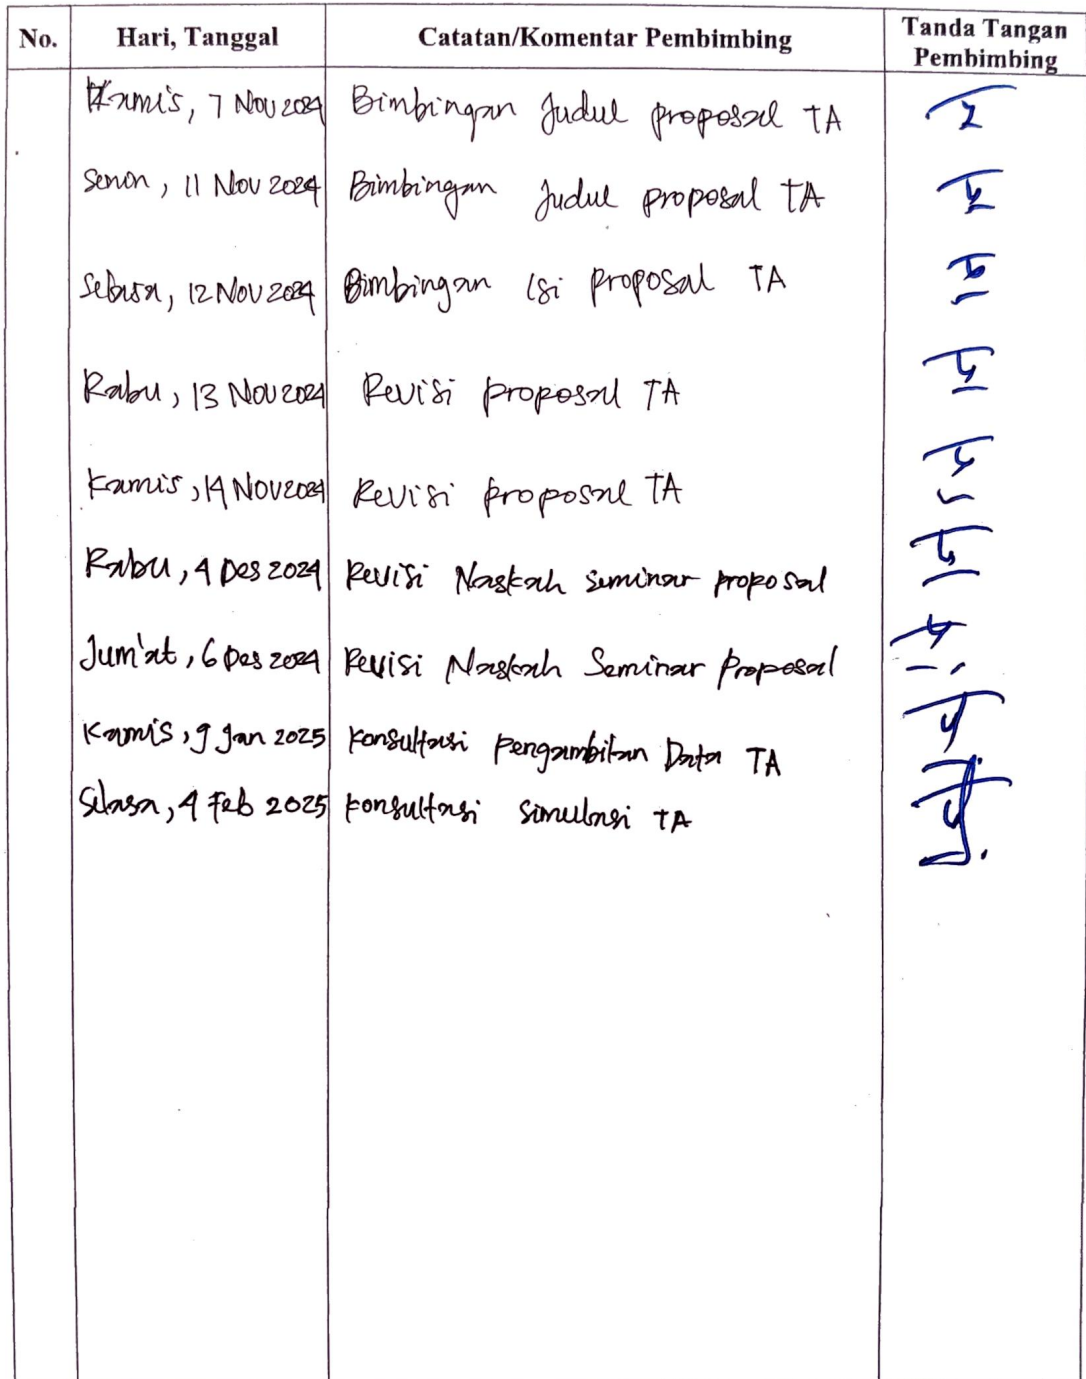 No. Hari, Tanggal Catatan/Komentar Pembimbing Tanda Tangan Pembimbing
Kamis, 7 Nov 2024 Bimbingan Judul proposal TA
Senin, 11 Nov 2024 Bimbingan Judul proposal TA
Selasa, 12 Nov 2024 Bimbingan Isi Proposal TA
Rabu, 13 Nov 2024 Revisi proposal TA
Kamis, 14 Nov 2024 Revisi proposal TA
Rabu, 4 Des 2024 Revisi Naskah seminar proposal
Jum'at, 6 Des 2024 Revisi Naskah Seminar Proposal
Kamis, 9 Jan 2025 Konsultasi Pengambilan Data TA
Selasa, 4 Feb 2025 Konsultasi simulasi TA